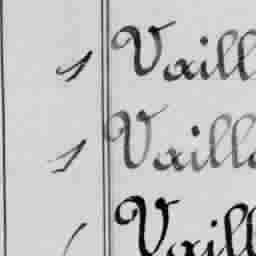 1 Vaill
1 Vaill
1 Vaill